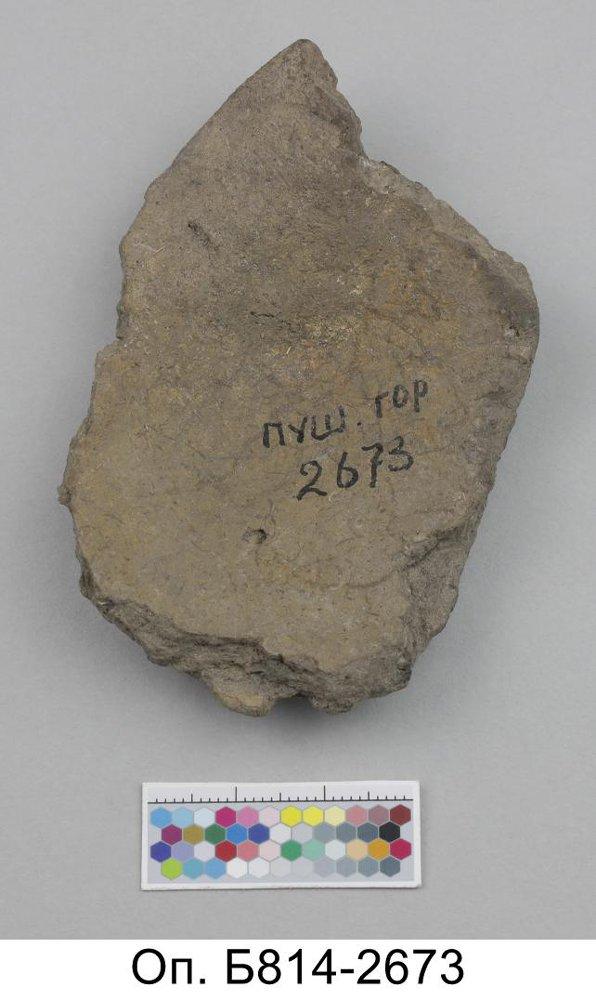 пуш. гор
2673
Оп. Б814-2673